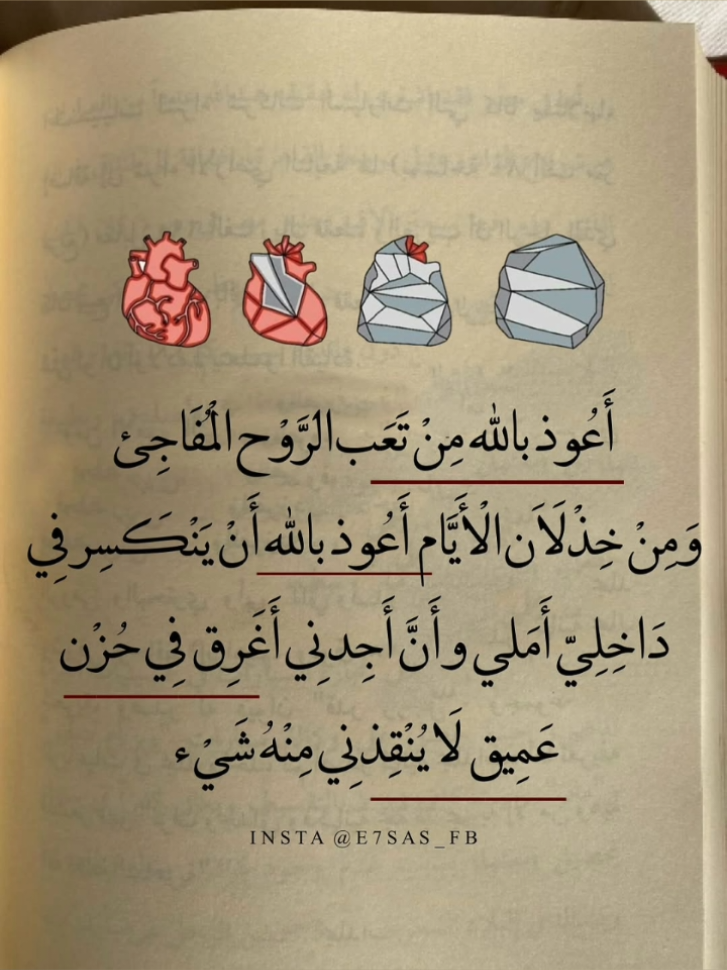 أَعُوذ بالله مِنْ تَعَب الرَّوْح الْمُفَاجِئ
وَمِنْ خِذْلَاَن الْأَيَّام أَعُوذ بالله أَنْ يَنْكَسِر فِي
دَاخِلِيّ أَمَلي و أَنَّ أَجِدنِي أَغَرِق فِي حُزْن
عَمِيق لَا يُنْقِذنِي مِنْهُ شَيْء
INSTA @E7SAS_FB